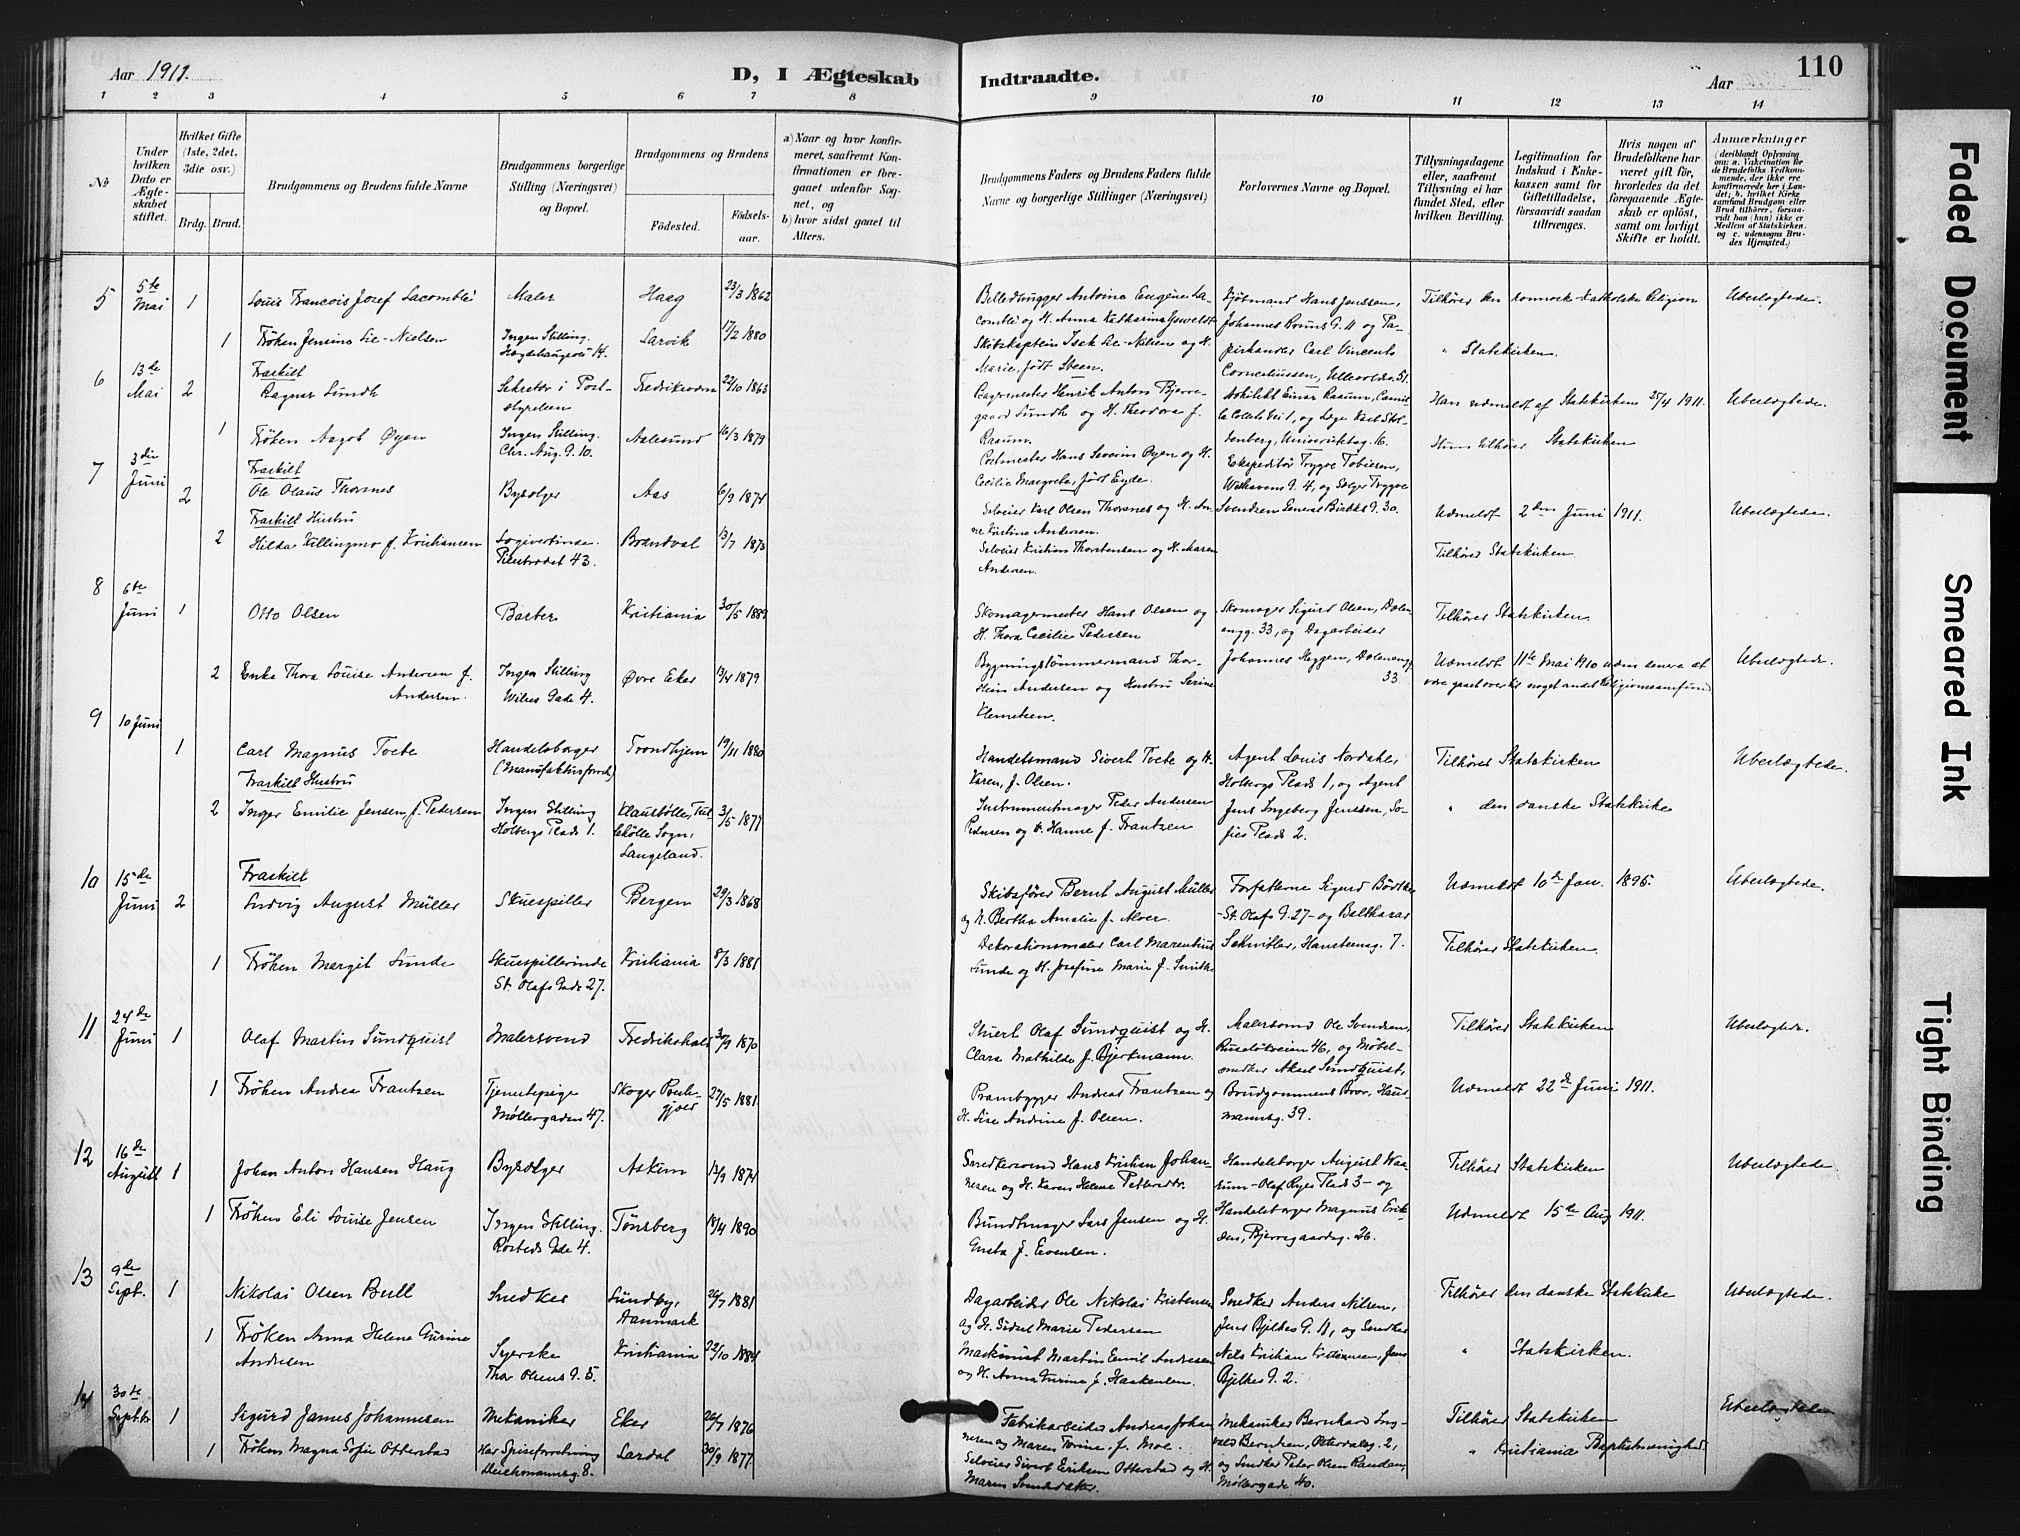 Aar 1911.
D, I Ægteskab
Indtraadte.
Aar
110
1 2 3 4 5 6 7 8 9 10 11 12 13 14
№
Under hvilken Dato er Ægteskabet stiftet.
Hvilket Gifte (1ste, 2det, 3die osv.)
Brdg. Brud.
Brudgommens og Brudens fulde Navne
Brudgommens borgerlige Stilling (Næringsvei) og Bopæl.
Brudgommens og Brudens
Fødested.
Fødsels-aar.
a) Naar og hvor konfirmeret, saafremt Konfirmationen er foregaaet udenfor Sognet, og
b) hvor sidst gaaet til Alters.
Brudgommens Faders og Brudens Faders fulde Navne og borgerlige Stillinger (Næringsvei)
Forlovernes Navne og Bopæl.
Tillysningsdagene eller, saafremt Tillysning ei har fundet Sted, efter hvilken Bevilling.
Legitimation for Indskud i Enkekassen samt for Giftetilladelse, forsaavidt saadan tiltrænges.
Hvis nogen af Brudefolkene har været gift før, hvorledes da det foregaaende Ægteskab er opløst, samt om lovligt Skifte er holdt.
Anmærkninger
(deriblandt Oplysning om: a. Vakcination for de Brudefolks Vedkommende, der ikke ere konfirmerede her i Landet; b. hvilket Kirkesamfund Brudgom eller Brud tilhører, forsaavidt han (hun) ikke er Medlem af Statskirken, og c. udensogns Brudes Hjemsted.)
5 5te Mai 1 Louis Francois Jozef Lacomblé Maler Haag 23/3 1862
Billedhugger Antoine Eugène Lacomblé og H. Anna Katharina
Kjøbmand Hans Jenssen, Johannes Bruns G. 11 og Papirhandler Carl Vincents Corneliussen, Ullevoldsv. 51.
Tilhører den romersk-katholske Religion Ubeslægtede.
1 Frøken Jensine Lie-Nielsen Ingen Stilling. Hægdehaugsvei 14. Larvik 17/2 1880
Skibskaptein Isak Lie-Nielsen og H. Marie, født Steen.
" Statskirken.
6 13de Mai 2 Fraskilt Ragnar Lundh Sekretær i Poststyrelsen Fredriksværn 22/10 1863
Lagermester Henrik Anton Bjerregaard Lundh og H. Theodora f. Rasum.
Arkitekt Einar Rasum, Camilla Colletts Vei 1, og Læge Karl Stoltenberg, Universitetsg. 16.
Han udmeldt af Statskirken 25/4 1911. Ubeslægtede.
1 Frøken Aagot Øyen Ingen Stilling. Chr. Aug. G. 10. Aalesund 16/3 1879
Postmester Hans Severin Øyen og H. Cecilie Margrete, født Eyde.
Hun tilhører Statskirken
7 3die Juni 2 Fraskilt Ole Olaus Thorsnes Bysælger Aas 6/9 1874
Selveier Karl Olsen Thorsnes og H. Anne Kristine Andersen.
Ekspeditør Trygve Tobiesen, Welhavens G. 4, og Sælger Trygve Svendsen General Birchs G. 30.
Udmeldt 2den Juni 1911. Ubeslægtede.
2 Fraskilt Hustru Hilda Killingmo f. Kristiansen Logivertinde. Pilestrædet 43. Brandval 13/7 1873
Selveier Kristian Thorstensen og H. Maren Andersen.
Tilhører Statskirken.
8 6te Juni 1 Otto Olsen Barber Kristiania 30/5 1889
Skomagermester Hans Olsen og H. Thora Cecilie Pedersen
Skomager Sigurd Olsen, Dælenengg. 33, og Dagarbeider Johannes Heggen, Dælenengg. 33
Tilhører Statskirken.
2 Enke Thora Louise Andersen f. Andersen. Ingen Stilling Wilses Gade 4. Øvre Eker 13/4 1879
Bygningstømmermand Thorstein Andersen og Hustru Serine Klemetsen.
Udmeldt 11te Mai 1910 uden senere at være gaaet over til noget andet Religionssamfund Ubeslægtede.
9 10 Juni 1 Carl Magnus Tvete Handelsborger (Manufakturforretn.) Trondhjem 19/11 1880
Handelsmand Sivert Tvete og H. Karen, f. Olsen.
Agent Louis Nordahl, Holbergs Plads 1, og Agent Jens Ingeborg Jenssen, Sofies Plads 2.
Tilhører Statskirken Ubeslægtede.
2 Fraskilt Hustru Inger Emilie Jensen, f. Pedersen Ingen Stilling Holbergs Plads 1. Klausbølle, Tullebølle Sogn, Langeland. 3/5 1877
Instrumentmager Peder Andersen Pedersen og H. Hanne f. Frantzen
" den danske Statskirke
10 15de Juni 2 Fraskilt Ludvig August Müller Skuespiller Bergen 29/3 1868
Skibsfører Bernt August Müller og H. Bertha Amalie f. Alver.
Forfatterne Sigurd Bødtker -St. Olafs G. 27- og Balthazar Schnitler, Hansteensg. 7.
Udmeldt 10de Jan. 1895. Ubeslægtede.
1 Frøken Margit Sunde Skuespillerinde St. Olafs Gade 27. Kristiania 8/3 1881
Dekorationsmaler Carl Marentius Sunde og H. Josefine Marie f. Smith.
Tilhører Statskirken.
11 24de Juni 1 Olaf Martin Sundquist Malersvend Fredrikshald 30/9 1870
Stuert Olaf Sundquist og H. Clara Mathilde f. Bjerkmann.
Malersvend Ole Svendsen, Ruseløkveien 46, og Møbelsnedker Aksel Sundquist, Brudgommens Bror, Hausmannsg. 39.
Tilhører Statskirken Ubeslægtede.
1 Frøken Andrea Frantzen Tjenestepige Møllergaden 47. Skoger 27/5 1881
Prambygger Andreas Frantzen og H. Lise Andrine f. Olsen.
Udmeldt 22de Juni 1911.
12 16de August 1 Johan Anton Hansen Haug Bysælger Askim 13/9 1874
Snedkersvend Hans Kristian Johannesen og H. Karen Helene
Handelsborger August Waarum -Olaf Ryes Plads 3- og Handelsborger Magnus Eriksen, Bjerregaardsg. 26.
Tilhører Statskirken Ubeslægtede.
1 Frøken Eli Louise Jensen Ingen Stilling. Rosteds Gde 4. Tønsberg 18/4 1890
Bundtmager Lars Jensen og H. Gusta f. Evensen.
Udmeldt 15de Aug 1911.
13 9de Sept. 1 Nikolai Olsen Bull Snedker Sundby, Danmark 26/7 1881
Dagarbeider Ole Nikolai Kristensen og H. Sidsel Marie Pedersen
Snedker Anders Nilsen, Jens Bjelkes G. 11, og Snedker Nils Kristian Kristensen, Jens Bjelkes G. 2.
Tilhører den danske Statskirke Ubeslægtede.
1 Frøken Anna Helene Gurine Andresen Syerske Thor Olsens G. 5. Kristiania 22/10 1884
Maskinist Martin Emil Andresen og H. Anna Gurine f. Haakensen.
" Statskirken.
14 30te Septbr 1 Sigurd James Johannesen Mekaniker Eker 26/7 1876
Fabrikarbeider Andreas Johannesen og Maren Torine f. Moe.
Mekaniker Bernhard Ingvald Berntsen, Osterdalsg. 2, og Snedker Peter Olsen Randem, Møllergade 40.
Tilhører Statskirken Ubeslægtede
1 Frøken Magna Sofie Otterstad Har Spiseforretning Deichmannsg. 8. Lardal 30/9 1877
Selveier Sivert Eriksen Otterstad og H. Maren
" Kristiania Baptistmenighed.
Faded Document
Smeared Ink
Tight Binding